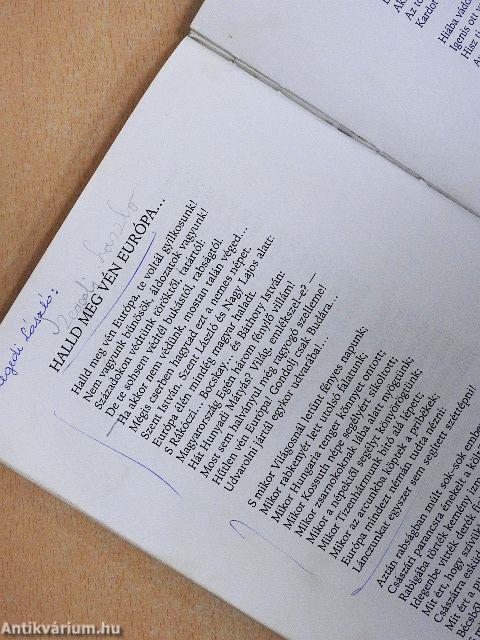 Szegedi László:
Szegedi László
HALLD MEG VÉN EURÓPA...
Halld meg vén Európa, te voltál gyilkosunk!
Nem vagyunk bűnösök, áldozatok vagyunk!
Századokon védtünk töröktől, tatártól.
De te sohsem védtél lukástól, rabságtól.
—Ha akkor nem védünk, mostan talán véged...
Mégis cserben hagytad ezt a nemes népet.
Szent István, Szent László és Nagy Lajos alatt:
Európa élén mindég magyar haladt.
S Rákóczi... Bocskay... és Báthory István:
Magyarország Egén három fénylő villám!
Hát Hunyadi Mátyás? Világ, emlékszel-e? —
Most sem halványul meg ragyogó szelleme!
Hűtlen vén Európa! Gondolj csak Budára...
Udvarolni jártál egykor udvarába!...
S mikor Világosnál letűnt fényes napunk;
Mikor rabkenyér lett utolsó falatunk;
Mikor Hungária tenger könnyet ontott;
Mikor Kossuth népe segélyért sikoltott;
Mikor zsarnokoknak lába alatt nyögtünk;
Mikor a népektől segélyt könyörögtünk;
Mikor Tizenhármunk bitó alá lépett;
Mikor az arcunkba köptek a pribékek;
Európa mindezt némán tudta nézni:
Láncunkat egyszer sem segített széttépni!
Azián rabságban múlt sok-sok
Császári parancsra énekelt a
Rabigába törték kemény
Idegenbe vitték derék
Mit ért, hogy szívük
Császárra esküd
Mit ért a
Bécsből
Mit ért
Hiába
Igenis ott
Hisz
Az
Kardot
Antikvárium.hu